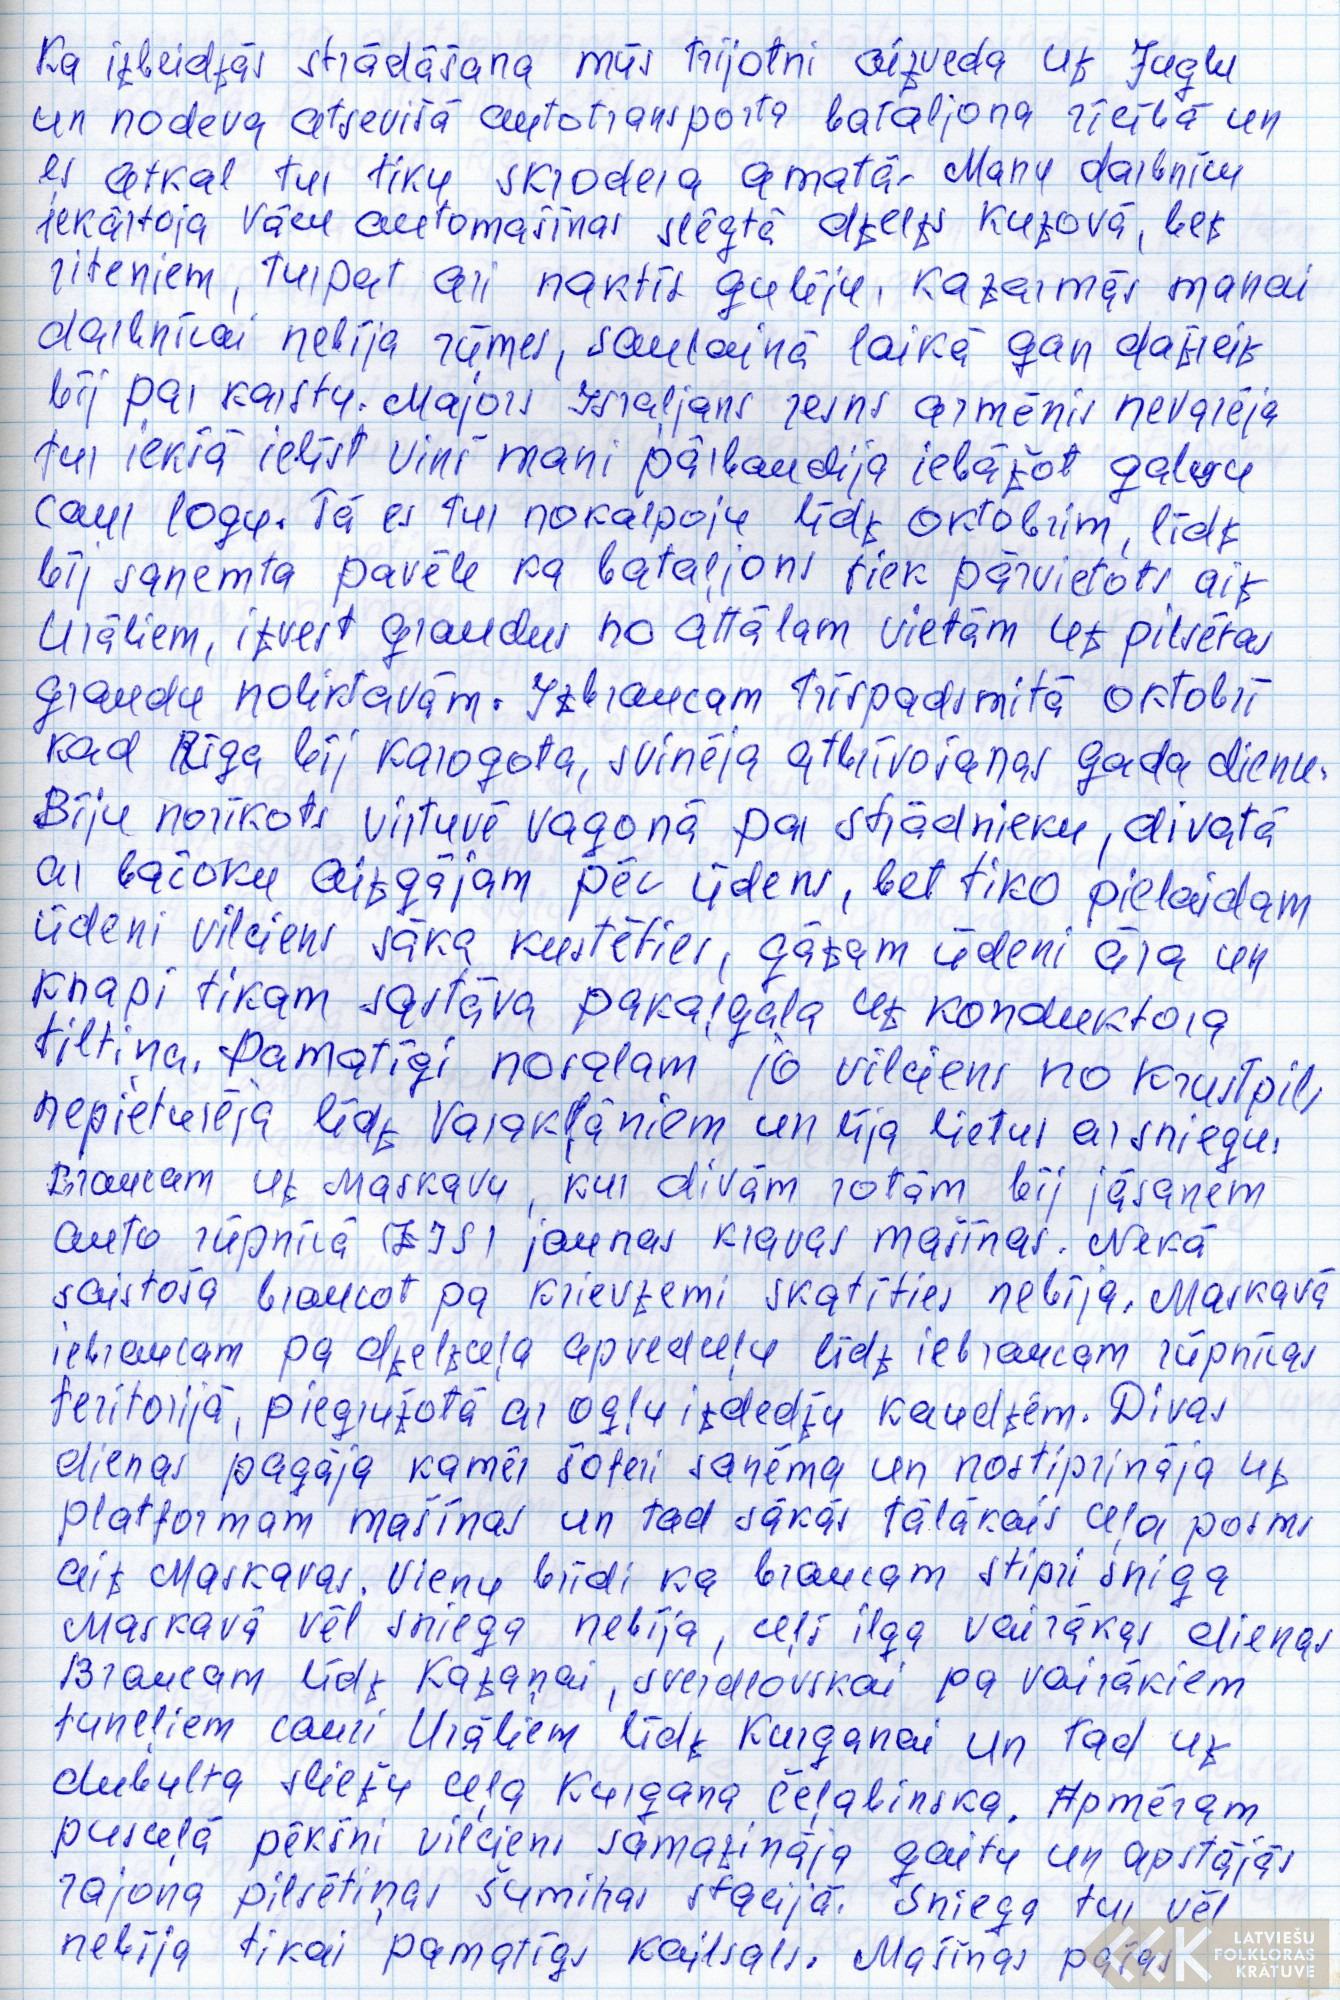 Ka izbeidzās strādāšana mūs trijotni aizveda uz Juglu
un nodeva atsevišā autotransporta bataljona rīcībā un
es atkal tur tiku skrodera amatā. Manu darbnīcu
iekārtoja Vācu automašīnas slēgtā dzelzs kuzovā, bez
riteņiem, turpat arī naktīs gulēju. Kazarmās manai
darbnīcai nebija rūmes, saulainā laikā gan dažreiz
bij par karstu. Majors Israljans resns armēnis nevarēja
tur iekšā ielīst viņš mani pārbaudīja iebāžot galvu
caur logu. Tā es tur nokalpoju līdz oktobrim, līdz
bij saņemta pavēle ka bataljons tiek pārvietots aiz
Urāliem, izvest graudus no attālam vietām uz pilsētas
graudu noliktavām. Izbraucam trīspadsmitā oktobrī
kad Rīga bij karogota, svinēja atbrīvošanas gada dienu.
Biju norīkots virtuvē vagonā par strādnieku, divatā
ar bačoku aizgājam pēc ūdens, bet tiko pielaidam
ūdeni vilciens sāka kustēties, gāzam ūdeni āra un
knapi tikam sastāva pakaļgala uz konduktora
tiltiņa. Pamatīgi nosalam jo vilciens no Krustpils
nepieturēja līdz Varakļāniem un lija lietus ar sniegu.
Braucam uz Maskavu, kur divām rotām bij jāsaņem
auto rūpnīcā (ZIS) jaunas kravas mašīnas. Nekā
saistoša braucot pa krievzemi skatīties nebija. Maskavā
iebraucam pa dzelzceļa apvedceļu līdz iebraucam rūpnīcas
teritorijā, piegružotā ar ogļu izdedžu kaudzēm. Divas
dienas pagāja kamēr šoferi saņēma un nostiprināja uz
platformam mašīnas un tad sākās tālākais ceļa posms
aiz Maskavas. Vienu brīdi ka braucam stipri sniga
Maskavā vēl sniega nebija, ceļš ilga vairākas dienas
Braucam līdz Kazaņai, Sverdlovskai pa vairākiem
tuneļiem cauri Urāliem līdz Kurganai un tad uz
dubulta sliežu ceļa Kurgana Čeļabinska. Apmēram
pusceļā pēkšņi vilciens samazināja gaitu un apstājās
rajona pilsētiņas Šumihas stacijā. Sniega tur vēl
nebija tikai pamatīgs kailsals. Mašīnas pašas
LATVIEŠU
FOLKLORAS
KRĀTUVE